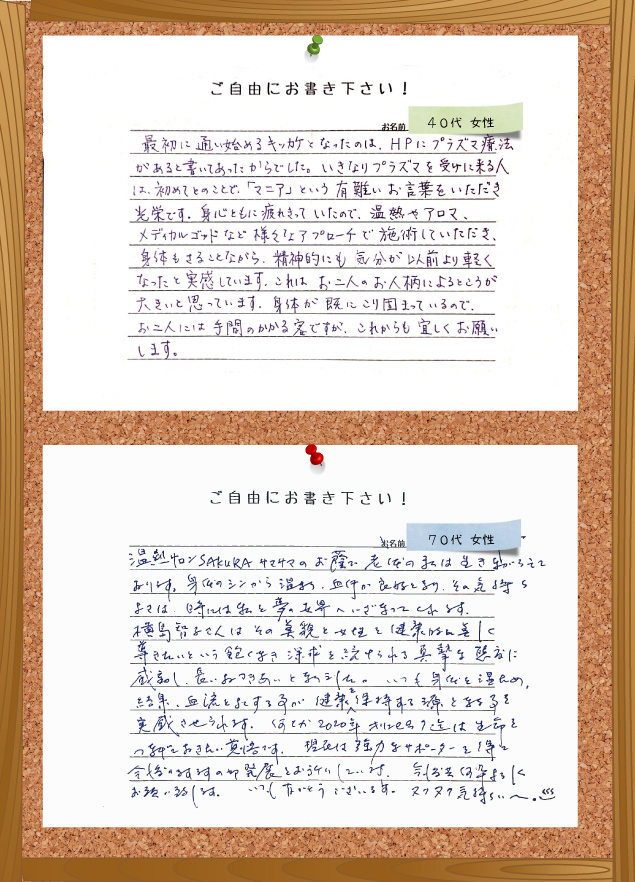 ご自由にお書き下さい!
お名前 40代 女性
最初に通い始めるキッカケとなったのは、HPにプラズマ療法
があると書いてあったからでした。いきなりプラズマを受けに来る人
は、初めてとのことで、「マニア」という有難いお言葉をいただき
光栄です。身心ともに疲れきっていたので、温熱やアロマ、
メディカルゴッドなど様々なアプローチで施術していただき、
身体もさることながら、精神的にも気分が以前より軽く
なったと実感しています。これはお二人のお人柄によるところが
大きいと思っています。身体が既にこり固まっているので、
お二人には手間のかかる客ですが、これからも宜しくお願い
します。
ご自由にお書き下さい!
お名前 70代 女性
温熱サロンSAKURAサマサマのお蔭で老体の私は生き
おります。身体のシンから温まり、血行が良好となり、その気持ち
よさは、時には私を夢の世界へいざなってくれます。
横島智子さんはその美貌と女性を健康的に美しく
導きたいという飽くなき探求を続けられる真摯な態度に
感動し、長いおつきあいとなりました。いつも身体を温め、
結果、血流をよくする事が健康を保持する源となる事を
実感させられます。何とか2020年オリンピック迄は生命を
つないでおきたい覚悟です。現在は強力なサポーターを得て
今後の益々の発展をお祈りしています。今後共何卒よろしく
お願い致します。いつもありがとうございます。ヌクヌク気持ちいい〜。